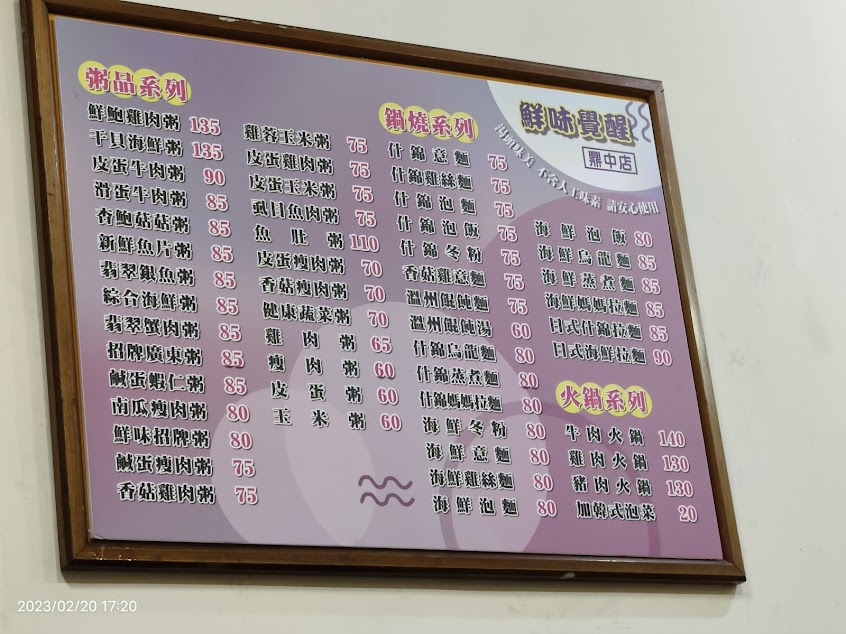 鮮味覺醒
鼎中店
湯頭味美 不含人工味素 請安心使用
粥品系列
鮮鮑雞肉粥 135
干貝海鮮粥 135
皮蛋牛肉粥 90
滑蛋牛肉粥 85
杏鮑菇菇粥 85
新鮮魚片粥 85
翡翠銀魚粥 85
綜合海鮮粥 85
翡翠蟹肉粥 85
招牌廣東粥 85
鹹蛋蝦仁粥 85
南瓜瘦肉粥 80
鮮味招牌粥 80
鹹蛋瘦肉粥 75
香菇雞肉粥 75
雞蓉玉米粥 75
皮蛋雞肉粥 75
皮蛋玉米粥 75
虱目魚肉粥 75
魚肚粥 110
皮蛋瘦肉粥 70
香菇瘦肉粥 70
健康蔬菜粥 70
雞肉粥 65
瘦肉粥 60
皮蛋粥 60
玉米粥 60
鍋燒系列
什錦意麵 75
什錦雞絲麵 75
什錦泡麵 75
什錦泡飯 75
什錦冬粉 75
香菇雞意麵 75
溫州餛飩麵 75
溫州餛飩湯 60
什錦烏龍麵 80
什錦蒸煮麵 80
什錦媽媽拉麵 80
海鮮冬粉 80
海鮮意麵 80
海鮮雞絲麵 80
海鮮泡麵 80
海鮮泡飯 80
海鮮烏龍麵 85
海鮮蒸煮麵 85
海鮮媽媽拉麵 85
日式什錦拉麵 85
日式海鮮拉麵 90
火鍋系列
牛肉火鍋 140
雞肉火鍋 130
豬肉火鍋 130
加韓式泡菜 20
2023/02/20 17:20